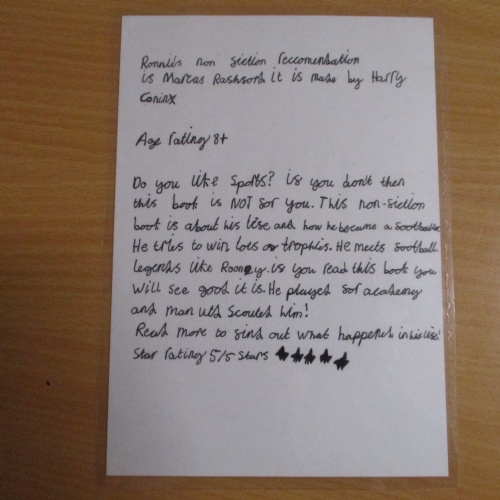 Ronnie's non fiction reccomendation
is Marcas Rashford it is made by Harry
Coninx
Age rating 8+
Do you like sports? if you don't then
this book is NOT for you. This non-fiction
book is about his life and how he became a footballer.
He tries to win lots of trophis. He meets football
legends like Rooney. if you read this book you
will see good it is. He played for academy
and man utd scouted him!
Read more to find out what happened in his life!
Star rating 5/5 stars